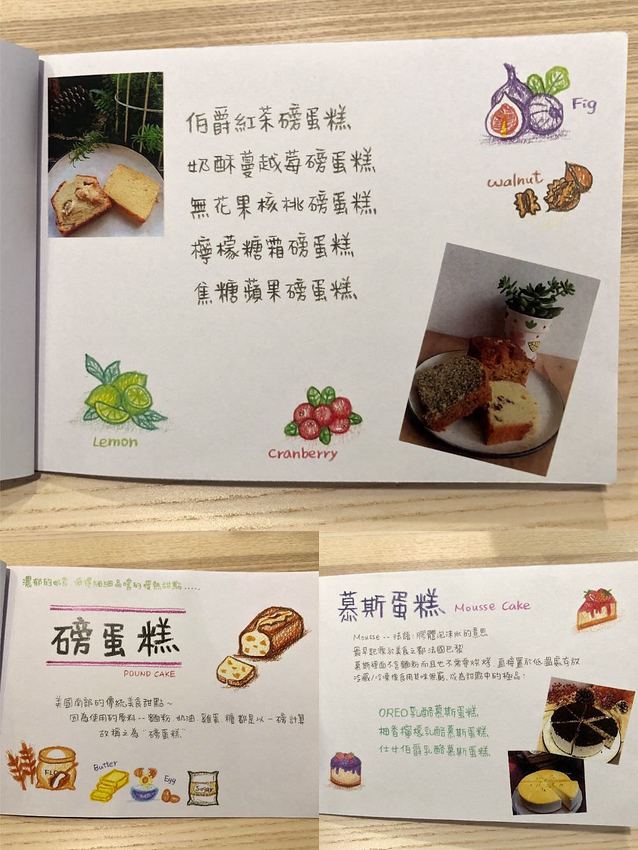 伯爵紅茶磅蛋糕
奶酥蔓越莓磅蛋糕
無花果核桃磅蛋糕
檸檬糖霜磅蛋糕
焦糖蘋果磅蛋糕
Fig
walnut
Lemon
Cranberry
濃郁的奶香,值得細細品嚐的優熱甜點.....
磅蛋糕
POUND CAKE
美國南部的傳統美食甜點~
因為使用的原料--麵粉 奶油 雞蛋 糖 都是以一磅計算
故稱之為"磅蛋糕"
Butter
Egg
Sugar
慕斯蛋糕 Mousse Cake
Mousse -- 法語:膠體泡沫狀的意思
最早起源於美食之都法國巴黎
慕斯裡面不含麵粉而且也不需要烘烤
OREO乳酪慕斯蛋糕
柚香檸檬乳酪慕斯蛋糕
仕女伯爵乳酪慕斯蛋糕